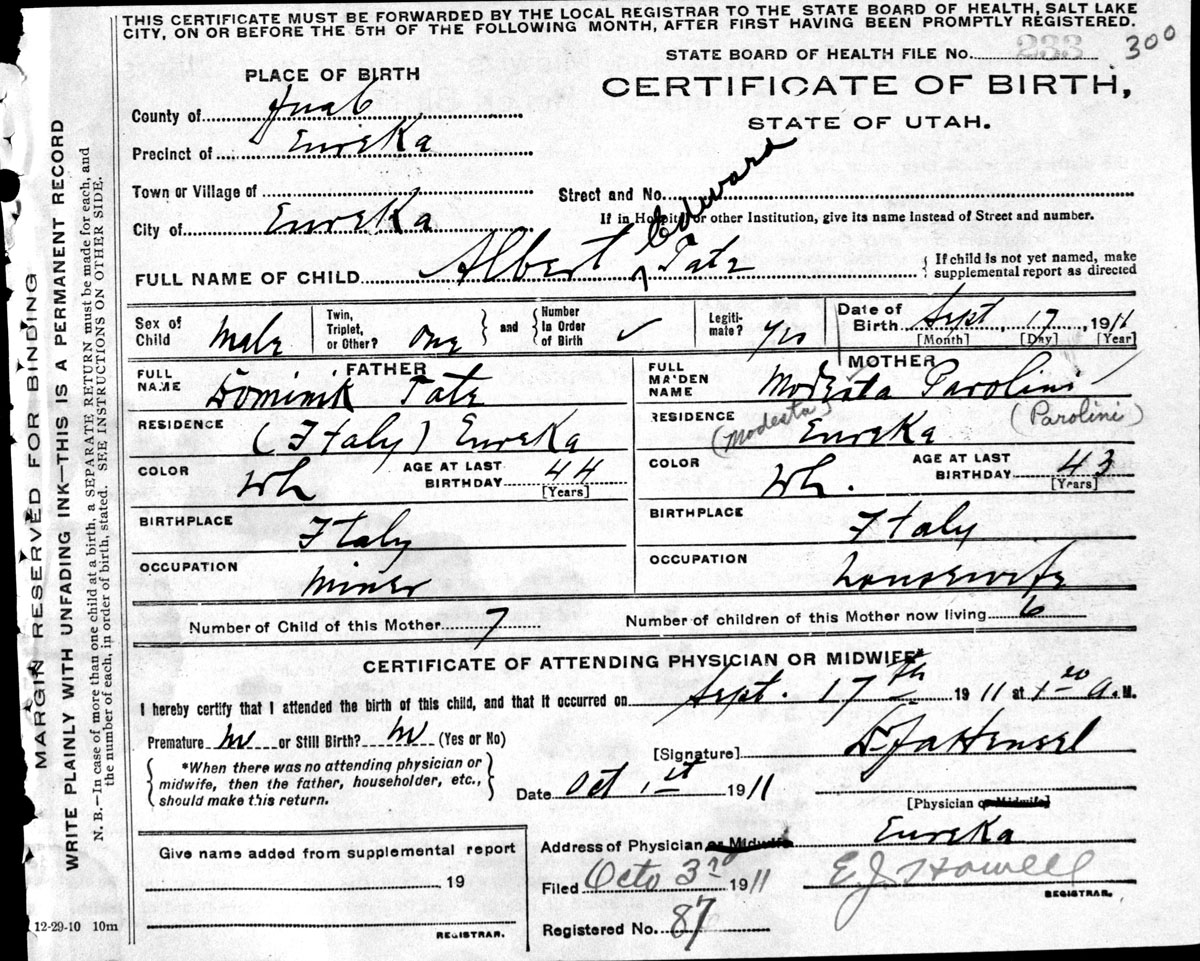 THIS CERTIFICATE MUST BE FORWARDED BY THE LOCAL REGISTRAR TO THE STATE BOARD OF HEALTH, SALT LAKE
CITY, ON OR BEFORE THE 5TH OF THE FOLLOWING MONTH, AFTER FIRST HAVING BEEN PROMPTLY REGISTERED.
STATE BOARD OF HEALTH FILE No. 233 300
PLACE OF BIRTH
CERTIFICATE OF BIRTH,
STATE OF UTAH.
County of Juab
Precinct of Eureka
Town or Village of
Street and No.
City of Eureka
If in Hospital or other Institution, give its name instead of Street and number.
Edward
FULL NAME OF CHILD Albert Tatz
{ If child is not yet named, make
supplemental report as directed
Sex of Child Male
Twin, Triplet, or Other? One } and { Number in Order of Birth ✓
Legiti-mate? yes
Date of Birth Sept, 17, 1911
[Month] [Day] [Year]
FATHER
FULL NAME Dominik Tatz
RESIDENCE (Italy) Eureka
COLOR Wh
AGE AT LAST BIRTHDAY 44
[Years]
BIRTHPLACE Italy
OCCUPATION Miner
MOTHER
FULL MAIDEN NAME Modesta Parolini
RESIDENCE (Modesta) Eureka (Parolini)
COLOR Wh.
AGE AT LAST BIRTHDAY 43
[Years]
BIRTHPLACE Italy
OCCUPATION Housewife
Number of Child of this Mother 7
Number of children of this Mother now living 6
CERTIFICATE OF ATTENDING PHYSICIAN OR MIDWIFE*
I hereby certify that I attended the birth of this child, and that it occurred on Sept. 17th 1911 at 1 A.M.
Premature No or Still Birth? No (Yes or No)
[Signature]
{ *When there was no attending physician or
midwife, then the father, householder, etc.,
should make this return. }
Date Oct 1st 1911
[Physician or Midwife]
Address of Physician or Midwife Eureka
Give name added from supplemental report
19
REGISTRAR.
Filed Octo 3rd 1911
E J Howell
REGISTRAR.
Registered No. 87
12-29-10 10m
MARGIN RESERVED FOR BINDING
WRITE PLAINLY WITH UNFADING INK—THIS IS A PERMANENT RECORD
N. B.—In case of more than one child at a birth, a SEPARATE RETURN must be made for each, and
the number of each, in order of birth, stated. SEE INSTRUCTIONS ON OTHER SIDE.